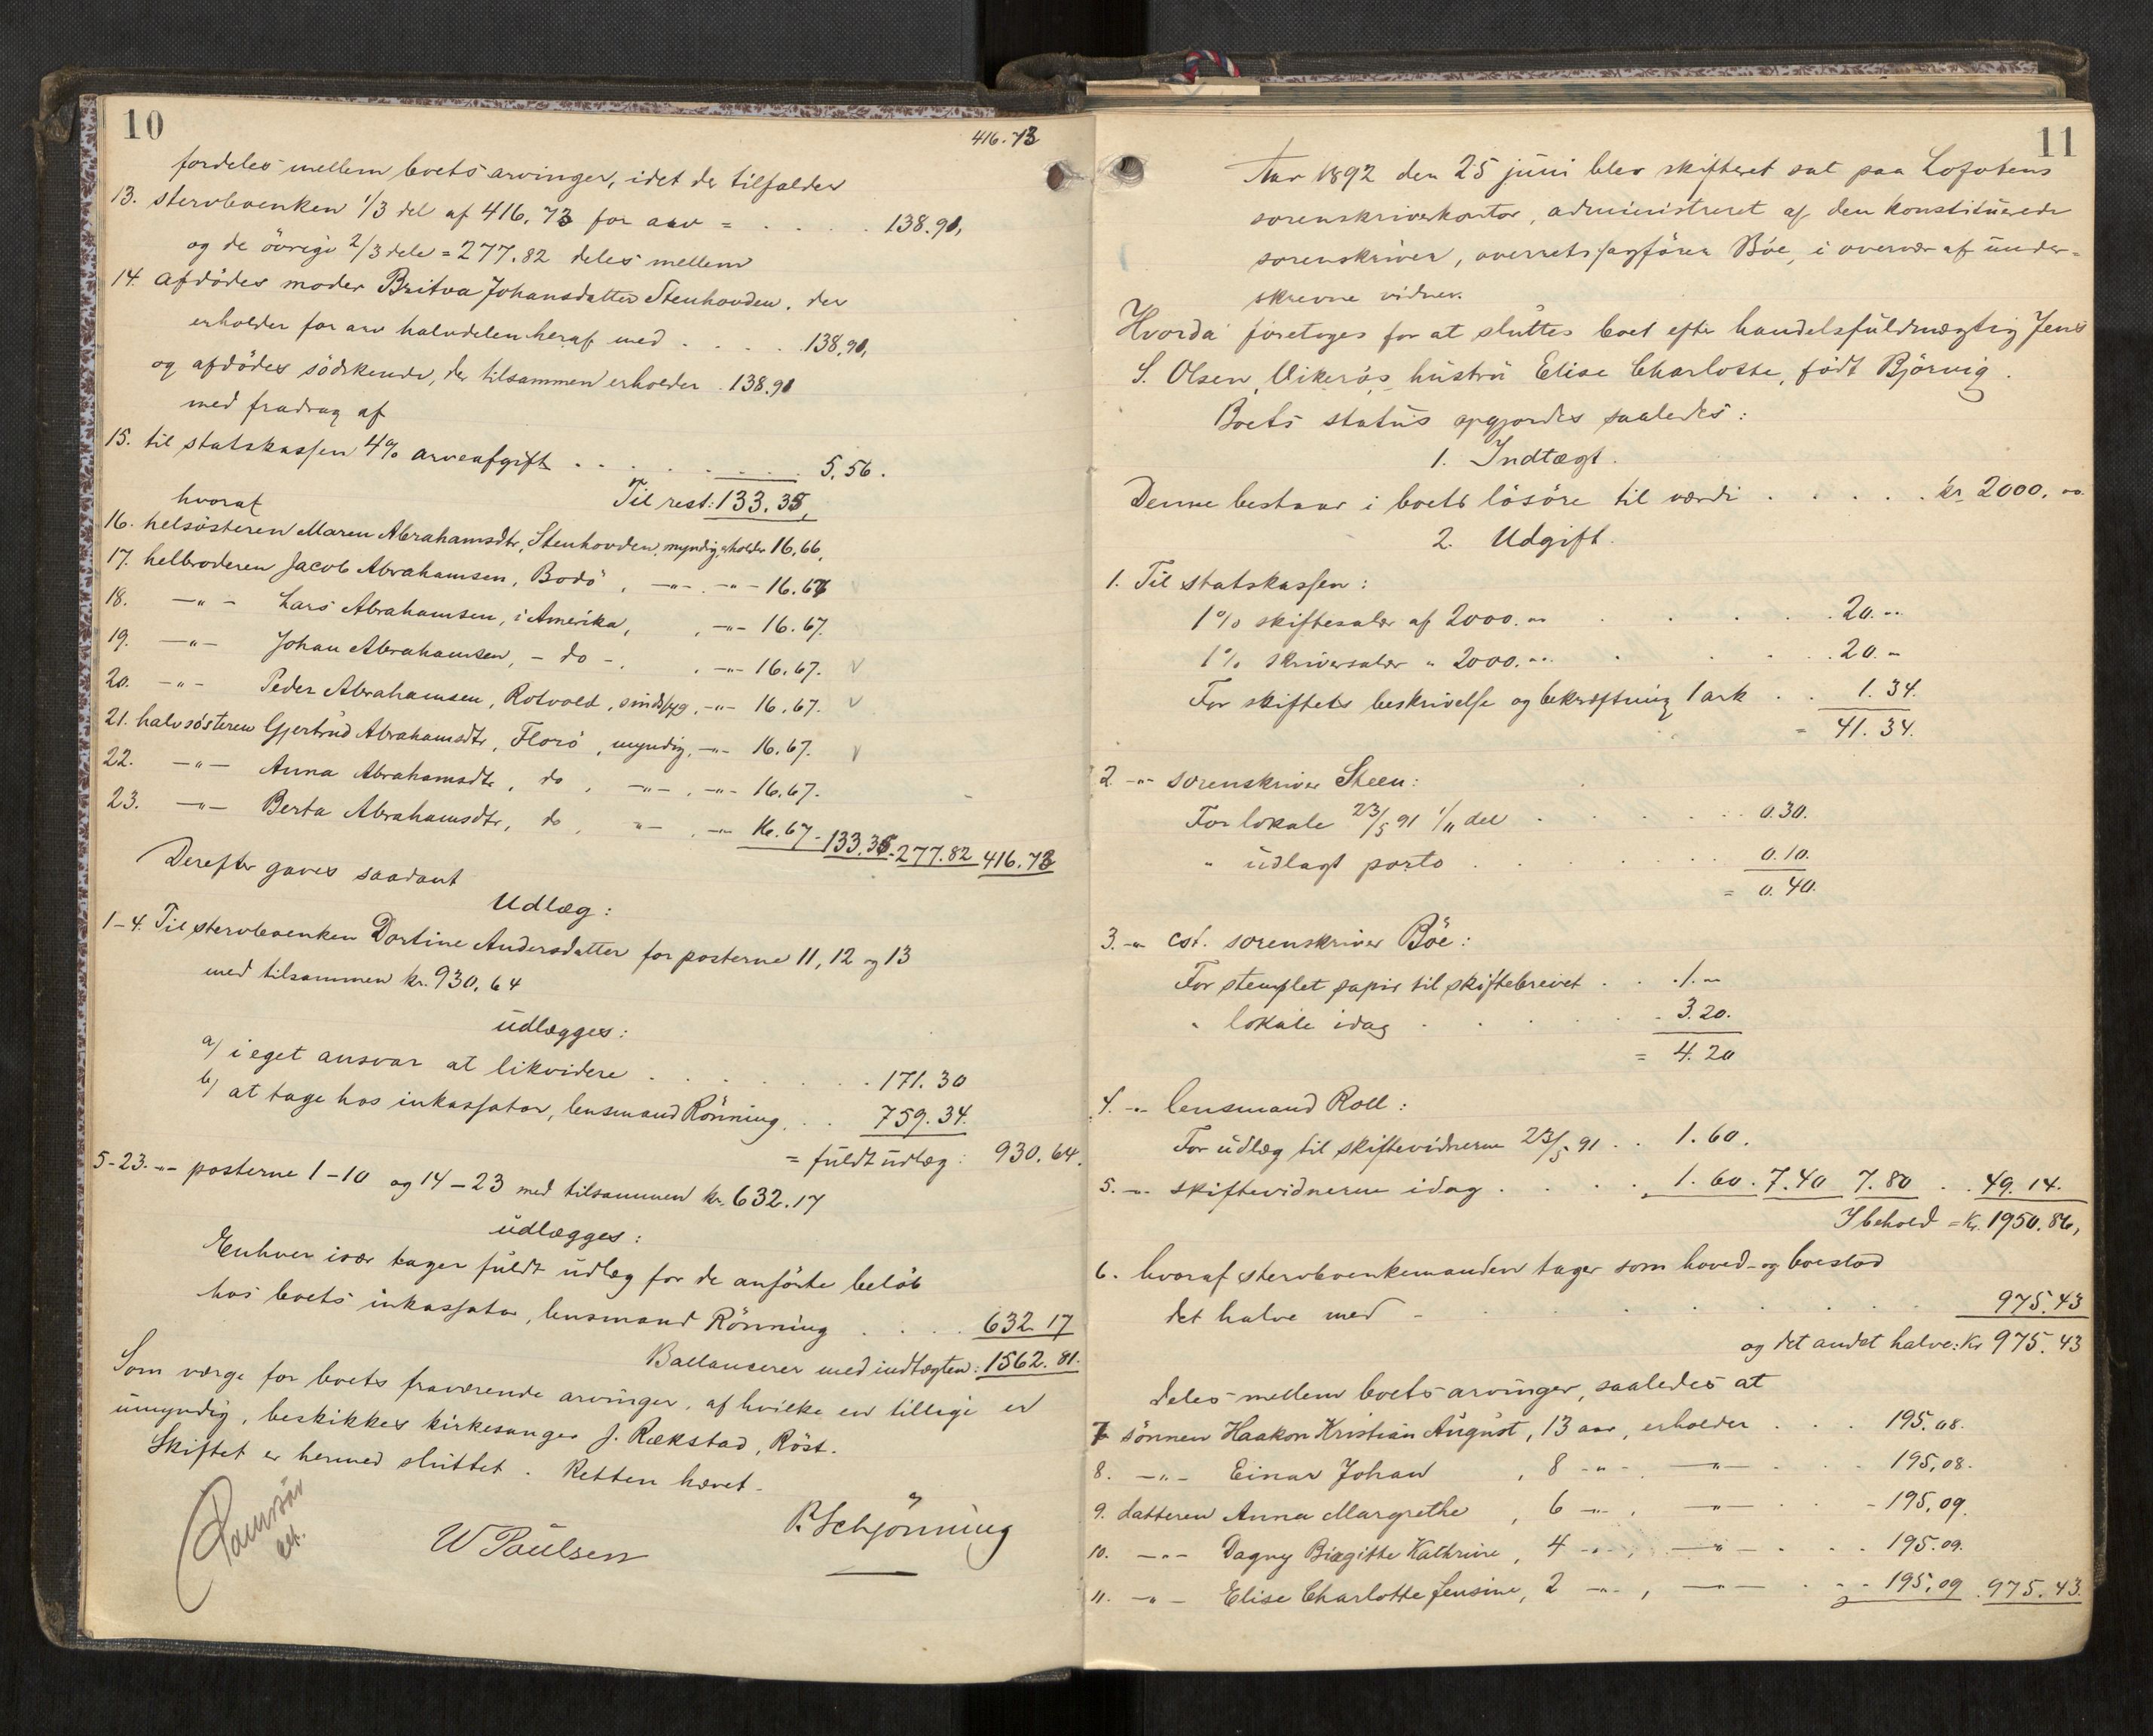 10
416.73
fordeles mellem boets arvinger, idet der tilfalder
13. stervboenken 1/3 del af 416,73 for arv = . . . . 138.91,
og de övrige 2/3 dele = 277.82 deles mellem
14. afdödes moder Britva Johansdatter Stenhovden, der
erholder for arv halvdelen heraf med . . . . 138,91,
og afdödes södskende, der tilsammen erholder . 138.91
med fradrag af
15. til statskassen 4% arveafgift . . . . . . . . 5,56.
Til rest: 133.35,
hvoraf
16. helsösteren Maren Abrahamsdtr, Stenhovden, myndig, erholder 16,66,
17. helbroderen Jacob Abrahamsen, Bodö, —"— . —"— 16.67
18. —"— Lars Abrahamsen, i Amerika, , —"— 16.67.
19. —"— Johan Abrahamsen, - do -. . —"— 16.67.
20. —"— Peder Abrahamsen, Rotvold, sindssyg, —"— 16.67.
21. halvsösteren Gjertrud Abrahamsdtr, Florö, myndig, —"— 16.67.
22. —"— Anna Abrahamsdtr, do , —"— , —"— 16.67.
23. —"— Berta Abrahamsdtr, do , "— , —"— 16.67 - 133.35 - 277.82 416.73
Derefter gaves saadant
Udlæg:
1-4. Til stervboenken Dortine Andersdatter for posterne 11, 12 og 13
med tilsammen kr. 930,64
udlægges:
a/ i eget ansvar at likvidere . . . . . . . 171.30
b/ at tage hos inkassator, lensmand Rönning . . . 759.34.
= fuldt udlæg: 930.64.
5-23. —"— posterne 1-10 og 14-23 med tilsammen kr. 632.17
udlægges:
Enhver især tager fuldt udlæg for de anförte belöb
hos boets inkassator, lensmand Rönning . . . . 632.17
Ballancerer med indtægten: 1562.81.
Som værge for boets fraværende arvinger, af hvilke en tillige er
umyndig, beskikkes kirkesanger J. Rækstad, Röst.
Skiftet er hermed sluttet. Retten hævet.
W Paulsen
P. Schjönning
11
Aar 1892 den 25 juni blev skifteret sat paa Lofotens
sorenskriverkontor, administreret af den konstituerede
sorenskriver, overretssagförer Böe, i overvær af under-
skrevne vidner.
Hvorda foretoges for at sluttes boet efter handelsfuldmægtig Jens
S. Olsen Vikeräs hustru Elise Charlotte, född Björvig.
Boets status opgjordes saaledes:
1. Indtægt.
Denne bestaar i boets lösöre til værdi . . . . . kr 2000. "
2. Udgift.
1. Til statskassen:
1% skiftesalær af 2000. " . . . . 20. "
1% skriversalær " 2000. " . . . . 20. "
For skiftets beskrivelse og bekræftning 1 ark . . 1.34.
= 41.34.
2. —"— sorenskriver Steen:
For lokale 23/5 91 1/11 del . . . . . . . 0.30.
" udlagt porto . . . . . . . . 0.10.
= 0.40.
3. —"— cst. sorenskriver Böe:
For stemplet papir til skiftebrevet . . . 1. "
" lokale idag . . . . . . 3.20.
= 4.20
4. —"— lensmand Roll:
For udlæg til skiftevidnerne 23/5 91 . . 1.60.
5. —"— skiftevidnerne idag . . . . . 1.60. 7.40 7.80 . . 49.14.
I behold = kr. 1950.86,
6. hvoraf stervboenkemanden tager som hoved- og boeslod
det halve med - . . . . . . . 975.43
og det andet halve: kr 975.43
deles mellem boets arvinger, saaledes at
7 sönnen Haakon Kristian August, 13 aar, erholder . . . 195.08.
8. —"— Einar Johan , 8 —"— , —"— . . . 195,08.
9. datteren Anna Margrethe , 6 —"— , —"— . . - 195,09.
10. —"— Dagny Birgitte Kathrine, 4 —"— , —"— . . . 195.09.
11. —"— Elise Charlotte Jensine, 2 —"— , —"— . . . 195,09 . 975.43.